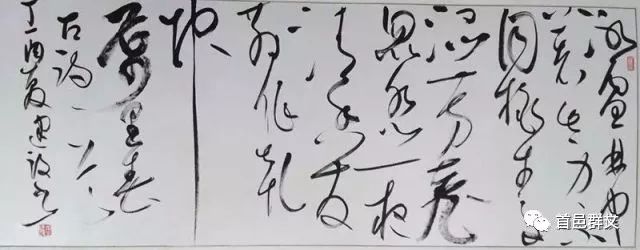 冰雪林中
著此身不
同桃李
混芳尘
忽然一夜
清香发
散作乾
坤
万里春
古诗一首
丁酉夏建设书
首邑群文